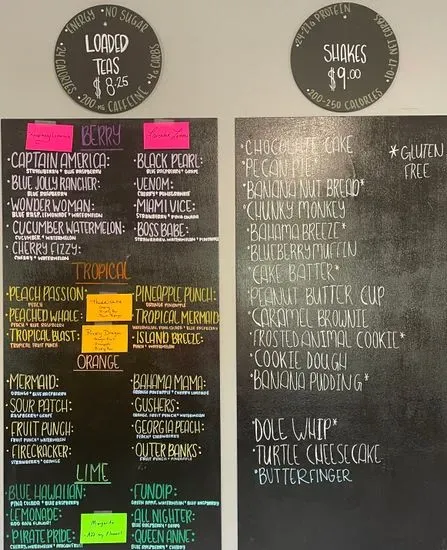 ENERGY • NO SUGAR
LOADED
TEAS
$ 8.25
24 CALORIES • 200 MG CAFFEINE • 4g CARBS
BERRY
CAPTAIN AMERICA:
STRAWBERRY * BLUE RASPBERRY
BLUE JOLLY RANCHER:
BLUE RASPBERRY
WONDER WOMAN:
BLUE RASP, LEMONADE * WATERMELON
CUCUMBER WATERMELON:
CUCUMBER * WATERMELON
CHERRY FIZZY:
CHERRY * WATERMELON
BLACK PEARL:
BLUE RASPBERRY * GRAPE
VENOM:
CHERRY * BLUE RASPBERRY
MIAMI VICE:
STRAWBERRY * PINA COLADA
BOSS BABE:
STRAWBERRY, WATERMELON *
TROPICAL
PEACH PASSION:
PEACH
PEACHED WHALE:
PEACH * BLUE RASPBERRY
TROPICAL BLAST:
TROPICAL FRUIT PUNCH
PINEAPPLE PUNCH:
TROPICAL MERMAID:
ISLAND BREEZE:
PEACH * WATERMELON
ORANGE
MERMAID:
ORANGE * BLUE RASPBERRY
SOUR PATCH:
RASPBERRY * GRAPE
FRUIT PUNCH:
FRUIT PUNCH * WATERMELON
FIRECRACKER:
STRAWBERRY * ORANGE
BAHAMA MAMA:
GUSHERS:
GEORGIA PEACH:
PEACH * STRAWBERRY
OUTER BANKS:
FRUIT PUNCH * PINEAPPLE
LIME
BLUE HAWAIIAN:
PINA COLADA * BLUE RASPBERRY
LEMONADE:
ADD ANY FLAVOR!
PIRATE PRIDE:
FUNDIP:
GREEN APPLE, WATERMELON * BLUE RASPBERRY
ALL NIGHTER:
BLUE RASPBERRY * GRAPE
QUEEN ANNE:
BLUE RASPBERRY * CHERRY
Margarita
24-27g PROTEIN
10-17 NET CARBS
SHAKES
$9.00
200-250 CALORIES
CHOCOLATE CAKE
PECAN PIE*
BANANA NUT BREAD*
CHUNKY MONKEY
BAHAMA BREEZE*
BLUEBERRY MUFFIN
CAKE BATTER*
PEANUT BUTTER CUP
CARAMEL BROWNIE
FROSTED ANIMAL COOKIE*
COOKIE DOUGH
BANANA PUDDING*
DOLE WHIP*
TURTLE CHEESECAKE
BUTTERFINGER
*GLUTEN
FREE